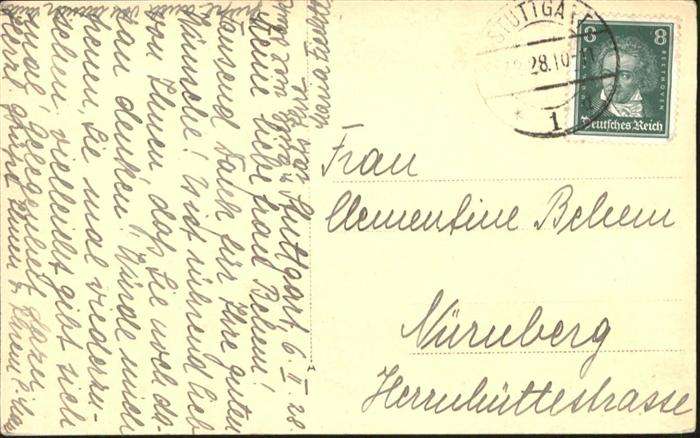 STUTTGART
28.10
1
8 8
BEETHOVEN
Deutsches Reich
Frau
Clementine Behem
Nürnberg
Herrnhüttestrasse
Stuttgart 6. II. 28
Meine liebe Frau Behem!
Tausend Dank für Ihre guten
Wünsche! Es ist rührend lieb
von Ihnen, daß Sie noch da-
ran denken. Würde mich
freuen, Sie mal wiederzu-
sehen, vielleicht gibt sich
mal Gelegenheit dazu.
Herzl. Grüße Ihnen &